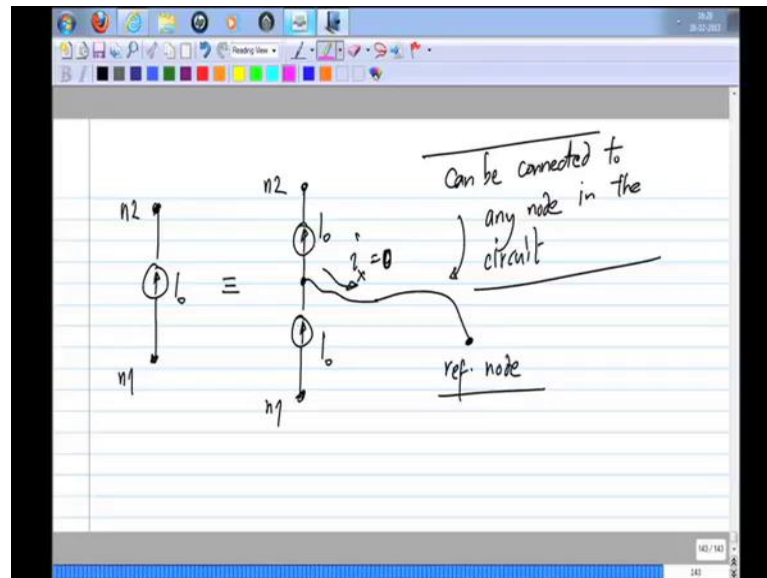 16:28
18-02-2013
Reading View
B I
n2
I0
n1
≡
n2
I0
ix = 0
I0
n1
Can be connected to
any node in the
circuit
ref. node
143 / 143
143